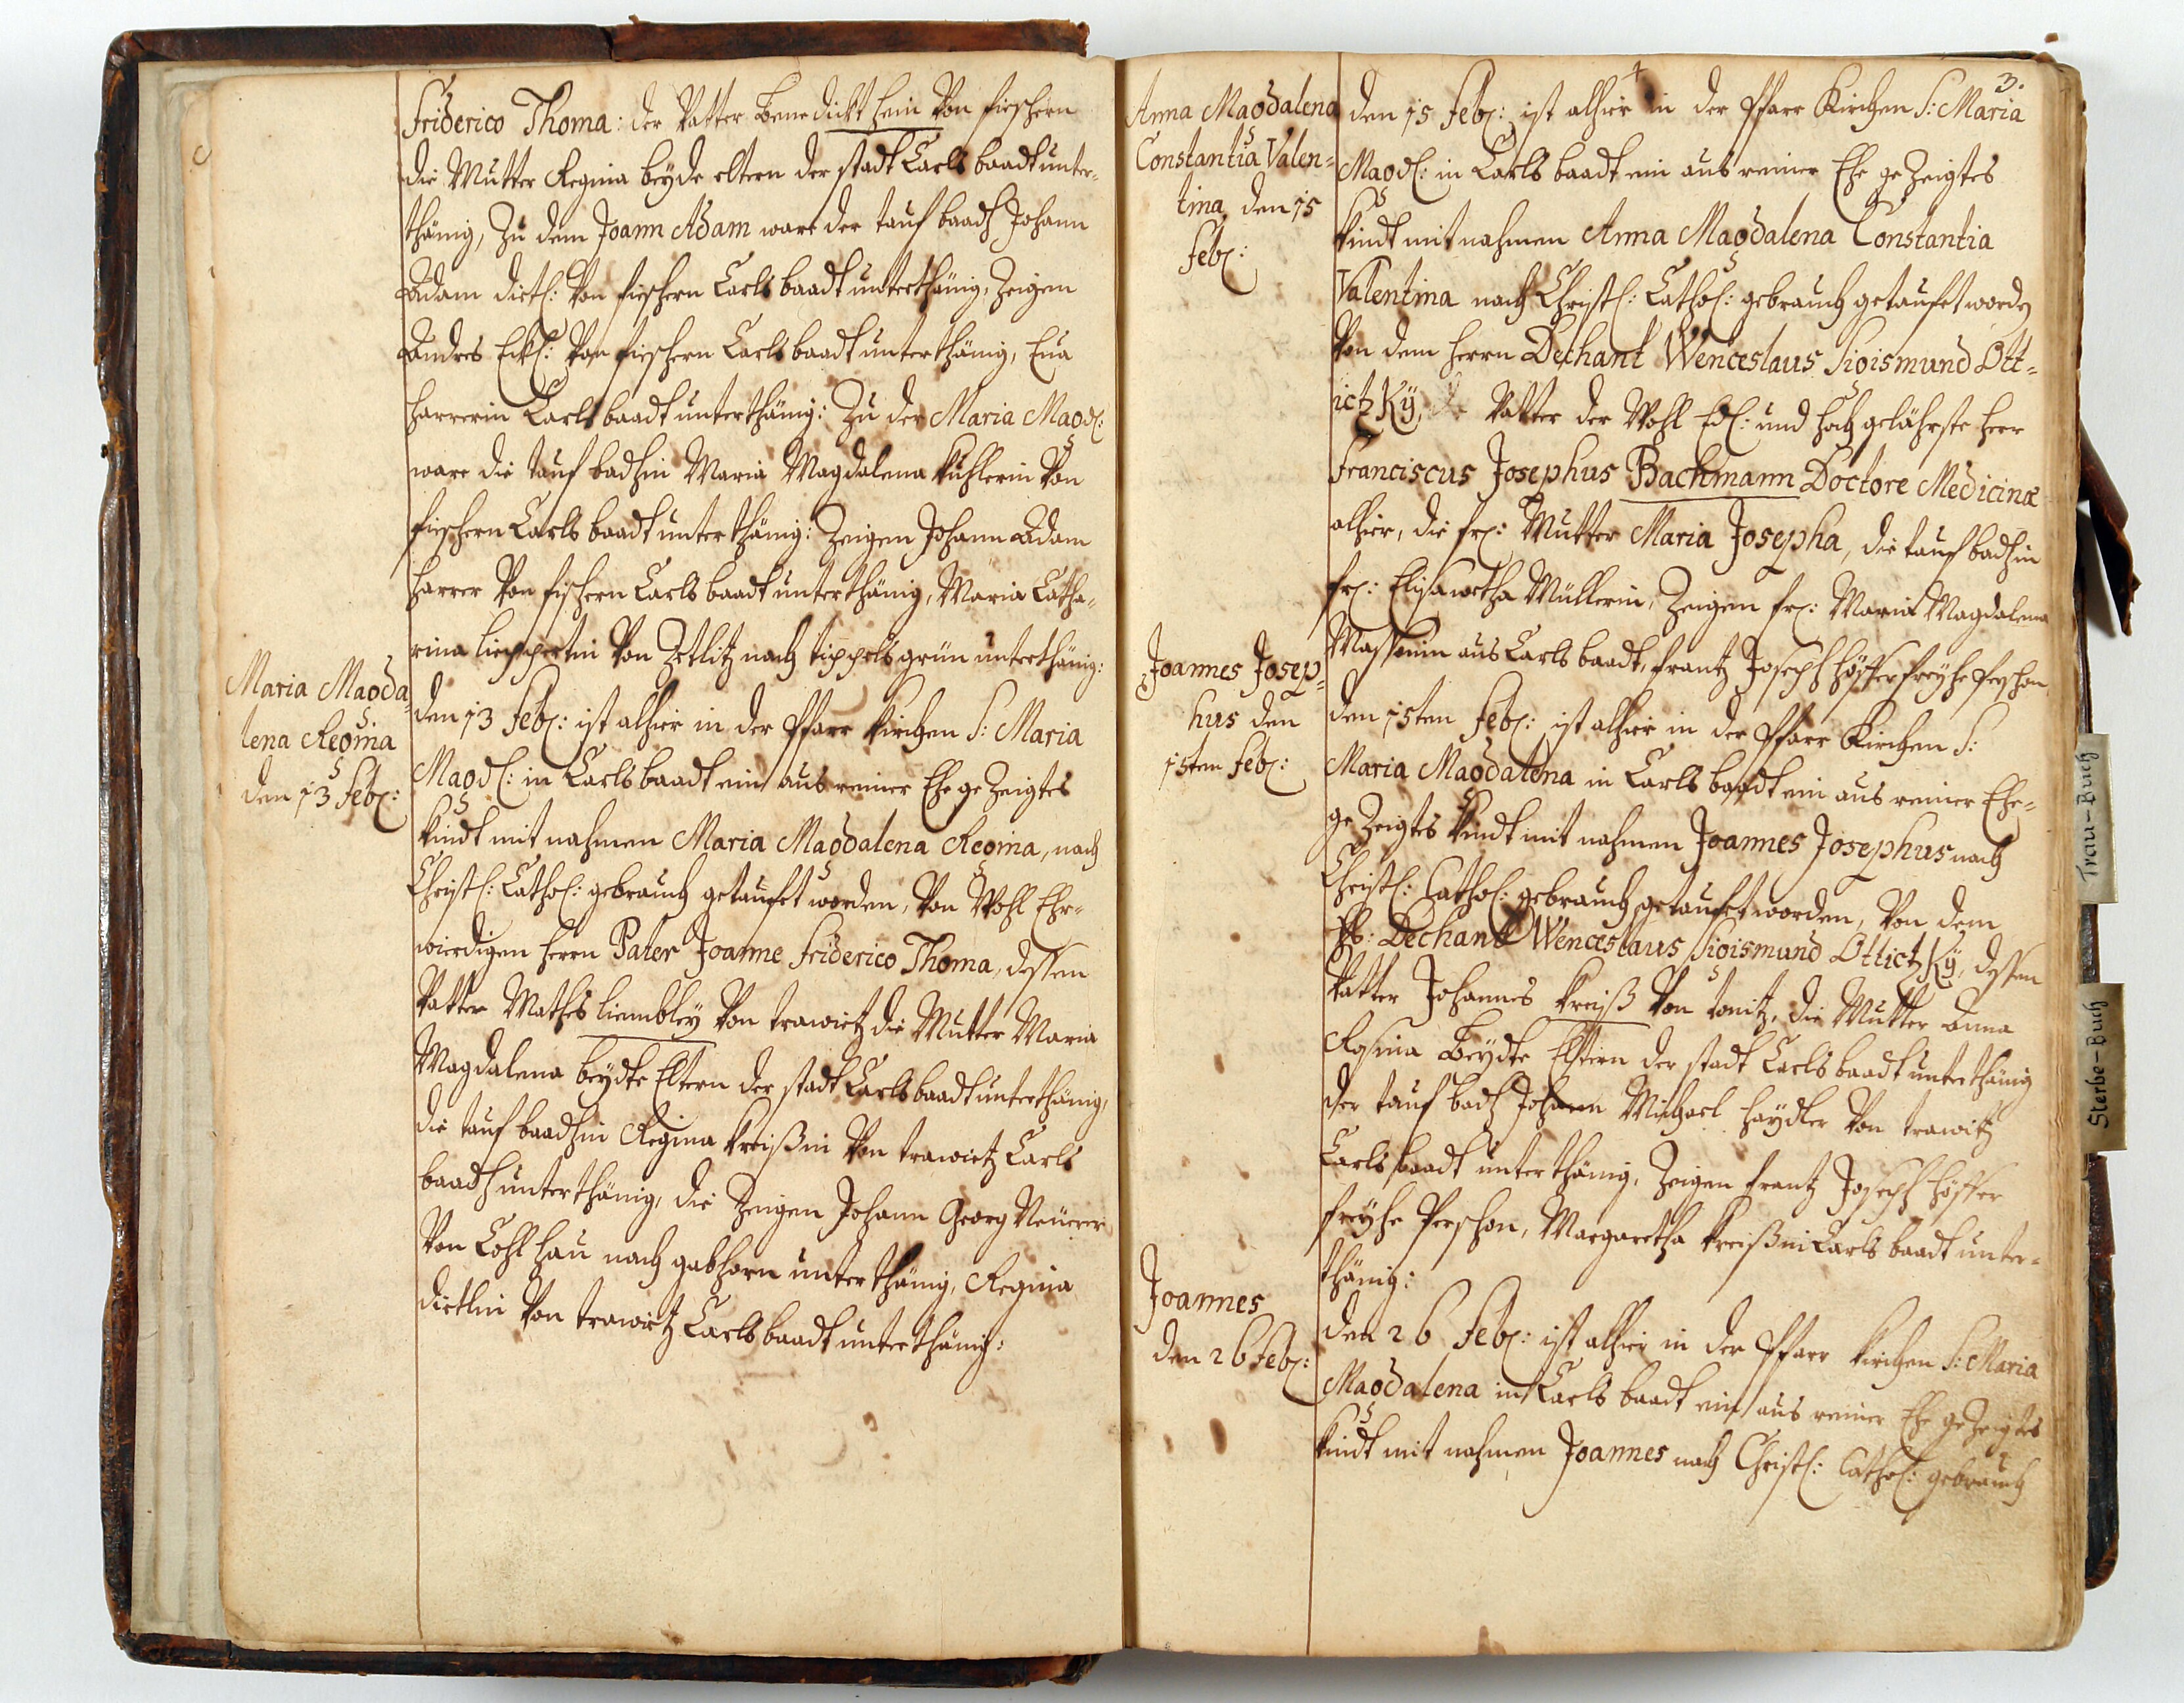 Friderico Thoma: der Vatter Benedickt Hein Von fischern
die Mutter Regina beyde eltern der stadt Carls baadt unter-
thänig, Zu dem Joann Adam ware der tauf baadh Johann
Adam dietl: Von fischern Carls baadt unterthänig, Zeigen
Andres Eckl: Von fischern Carls baadt unterthänig, Eua
Harrerin Carls baadt unterthänig: Zu der Maria Magdl:
ware die tauf badhin Maria Magdalena Kuhlerin Von
fischern Carls baadt unterthänig: Zeigen Johann Adam
Harrer Von fischern Carls baadt unterthänig, Maria Catha-
rina lieppertin Von Zetlitz nach tippelsgrün unterthänig:
Maria Magda-
lena Regina
den 13 Feb:
den 13 Feb: ist alhier in der Pfarr Kirchen S: Maria
Magdl: in Carls baadt ein aus reiner Ehe ge Zeigtes
Kindt mit nahmen Maria Magdalena Regina, nach
Christl: Cathol: gebrauch getauft worden, Von Wohl Ehr-
wierdigen Herrn Pater Joanne Friderico Thoma, dessen
Vatter Mathes liembley Von trawietz die Mutter Maria
Magdalena beydte Eltern der stadt Carls baadt unterthänig,
die tauf baadhin Regina Kreißin Von trawietz Carls
baadh unterthänig, die Zeigen Johann Georg Neüerer
Von Cohl hau nach gabhorn unterthänig, Regina
dietlin Von trawietz Carls baadt unterthänig:
3.
Anna Magdalena
Constantia Valen-
tina, den 15
Feb:
den 15 Feb: ist alhier in der Pfarr Kirchen S: Maria
Magdl: in Carls baadt ein aus reiner Ehe ge Zeigtes
Kindt mit nahmen Anna Magdalena Constantia
Valentina nach Christl: Cathol: gebrauch getaufet worden
Von dem Herrn Dechant Wenceslaus Sigismund Ott-
ictzKÿ, Vatter der Wohl Edl: und hoch gelährste Herr
Franciscus Josephus Bachmann Doctore Medicinæ
alhier, die fr: Mutter Maria Josepha, die tauf badhin
fr: Elisawetha Müllerin, Zeigen fr: Maria Magdalena
aus Carls baadt, Frantz Joseph Höffer freyhe
Joannes Josep-
hus den
15ten Feb:
den 15ten Feb: ist alhier in der Pfarr Kirchen S:
Maria Magdalena in Carls baadt ein aus reiner Ehe-
ge Zeigtes Kindt mit nahmen Joannes Josephus nach
Christl: Cathol: gebrauch getauft worden, Von dem
H: Dechant Wenceslaus Sigismund OttictzKÿ, dessen
Vatter Johannes Kreiß Von tonitz, die Mutter Anna
Rosina Beydte Eltern der stadt Carls baadt unterthänig
der tauf badh Johann Michael Haydler Von trawitz
Carls baadt unterthänig, Zeigen Frantz Joseph Höffer
freyhe Perschon, Margaretha Kreißin Carls baadt unter-
thänig:
Joannes
den 26 Feb:
den 26 Feb: ist alhier in der Pfarr Kirchen S: Maria
Magdalena in Carls baadt ein aus reiner Ehe ge Zeigtes
Kindt mit nahmen Joannes nach Christl: Cathol: gebrauch
Trau-Buch
Sterbe-Buch